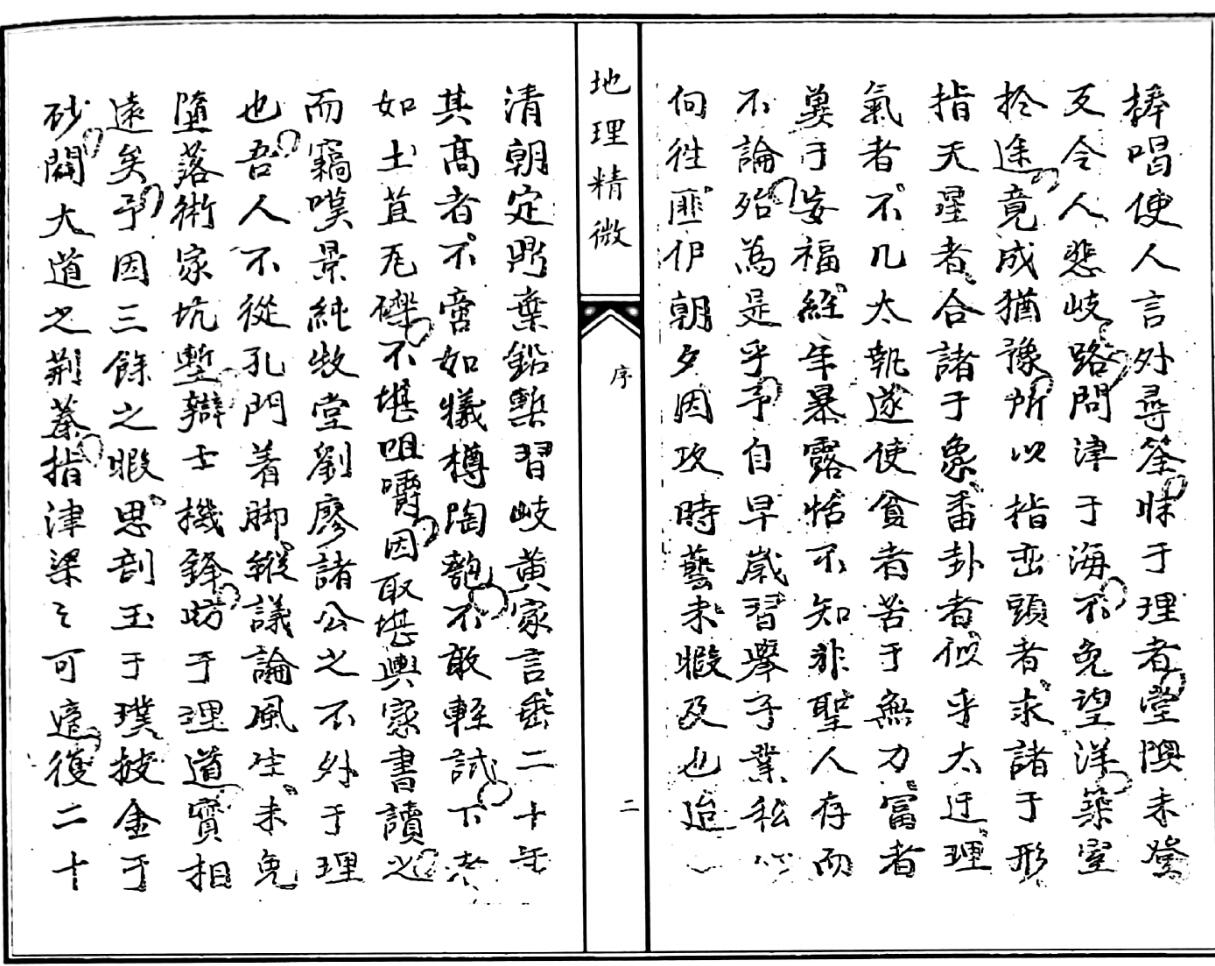 棒喝使人言外尋筌昧于理者堂隩未登
反令人悲岐路問津于海不免望洋築室
於途竟成猶豫所以指巒頭者求諸于形
指天星者合諸于象番卦者似乎太迂理
氣者不几太執遂使貧者苦于無力富者
冀于妄福經年暴露恬不知非聖人存而
不論殆為是乎予自早歲習舉子業私心
向往匪伊朝夕因攻時藝未暇及也迨
地理精微
序
二
清朝定鼎棄鉛槧習岐黃家言垂二十年
其高者不啻如犧樽陶匏不敢輕試下者
如土苴瓦礫不堪咀嚼因取堪輿家書讀之
而竊嘆景純牧堂劉廖諸公之不外于理
也吾人不從孔門着脚縱議論風生未免
墮落術家坑塹辯士機鋒昉于理道實相
遠矣予因三餘之暇思剖玉于璞披金于
砂闢大道之荆蓁指津梁之可適復二十